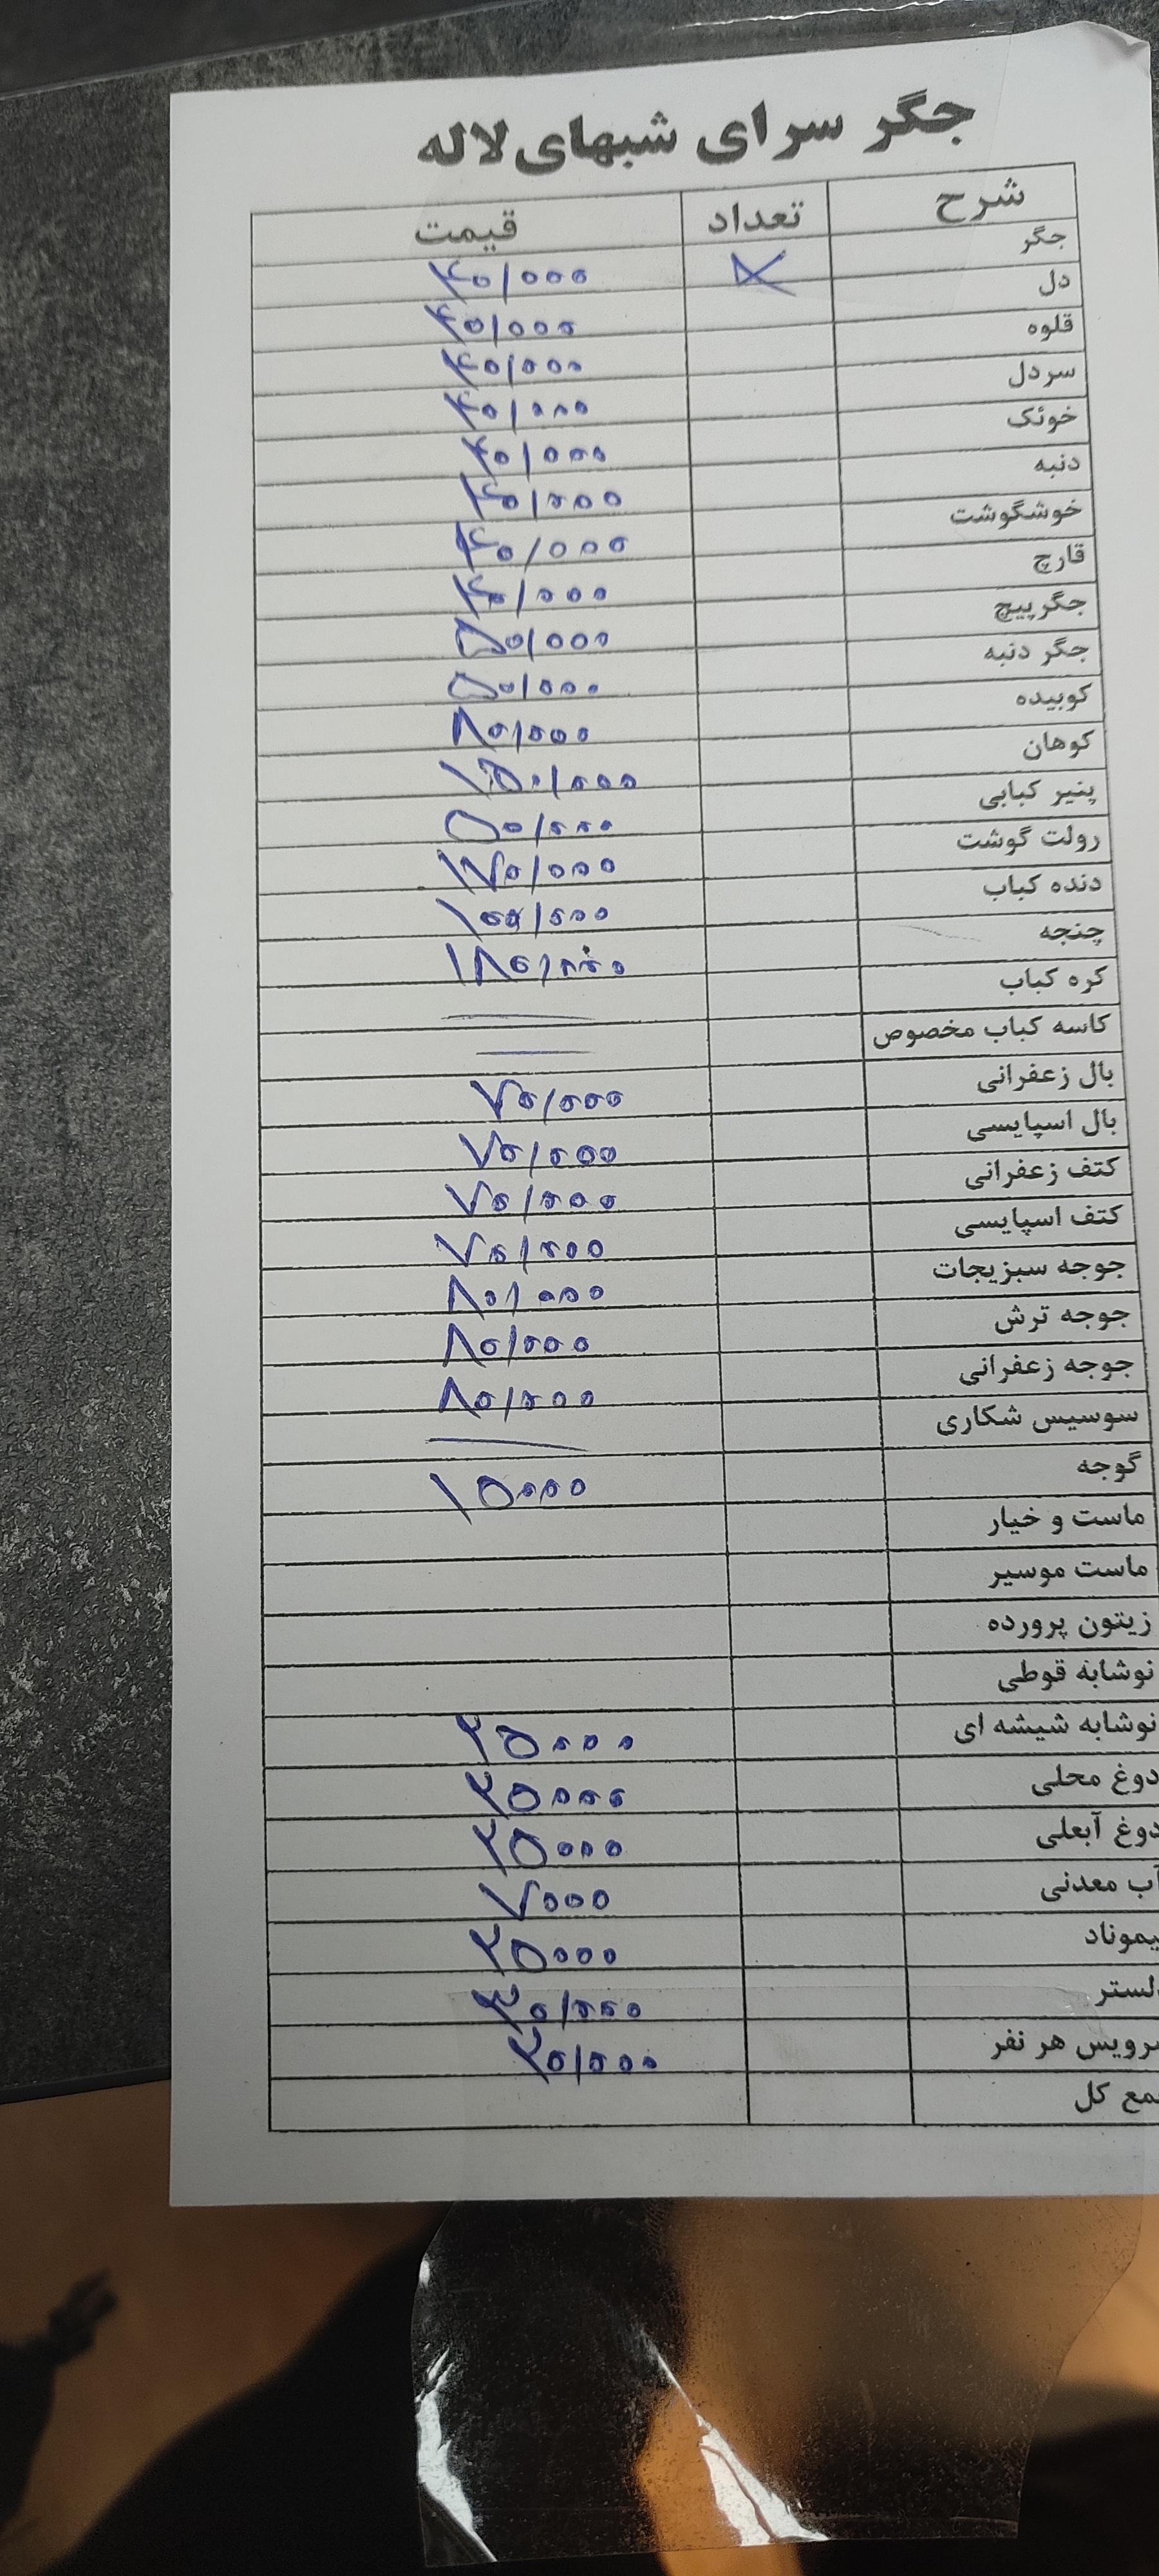 جگر سرای شبهای لاله
شرح تعداد قیمت
جگر ۴۰/۰۰۰
دل ۴۰/۰۰۰
قلوه ۴۰/۰۰۰
سردل ۴۰/۰۰۰
خوئک ۴۰/۰۰۰
دنبه ۴۰/۰۰۰
خوشگوشت ۴۰/۰۰۰
قارچ ۴۰/۰۰۰
جگرپیچ ۵۰/۰۰۰
جگر دنبه ۵۰/۰۰۰
کوبیده ۸۰/۰۰۰
کوهان ۱۵۰/۰۰۰
پنیر کبابی ۵۰/۰۰۰
رولت گوشت ۱۷۰/۰۰۰
دنده کباب ۱۰۰/۰۰۰
چنجه ۱۸۰/۰۰۰
کره کباب
کاسه کباب مخصوص
بال زعفرانی ۷۰/۰۰۰
بال اسپایسی ۷۰/۰۰۰
کتف زعفرانی ۷۰/۰۰۰
کتف اسپایسی ۷۰/۰۰۰
جوجه سبزیجات ۸۰/۰۰۰
جوجه ترش ۸۰/۰۰۰
جوجه زعفرانی ۸۰/۰۰۰
سوسیس شکاری
گوجه ۱۵۰۰۰
ماست و خیار
ماست موسیر
زیتون پرورده
نوشابه قوطی
نوشابه شیشه ای ۲۵۰۰۰
دوغ محلی ۲۵۰۰۰
دوغ آبعلی ۲۵۰۰۰
آب معدنی ۷۰۰۰
یموناد ۲۵۰۰۰
لستر
رویس هر نفر ۲۰/۰۰۰
مع کل